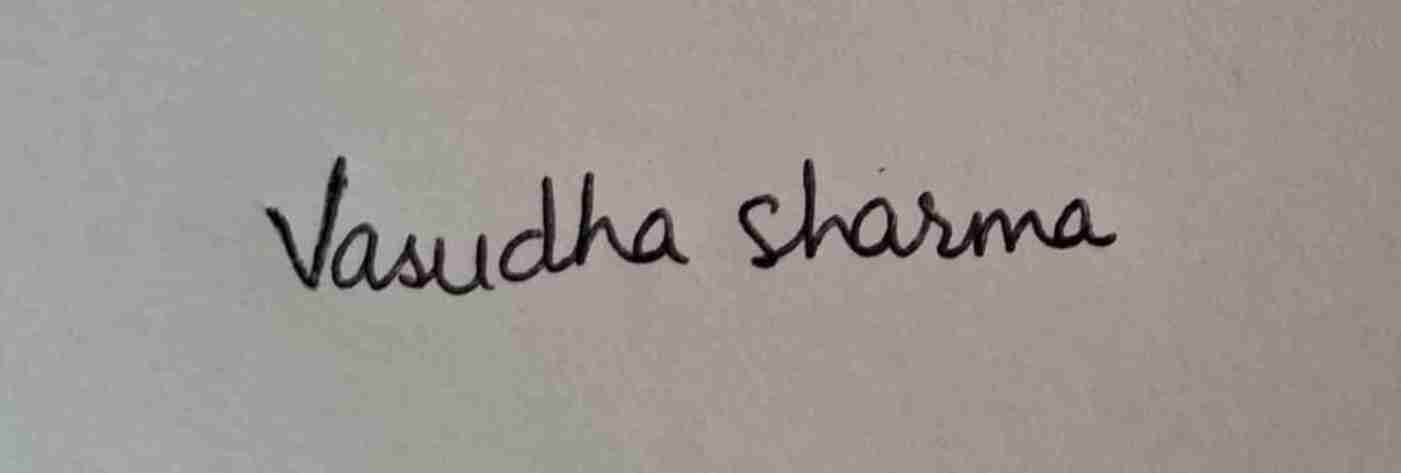 Vasudha sharma